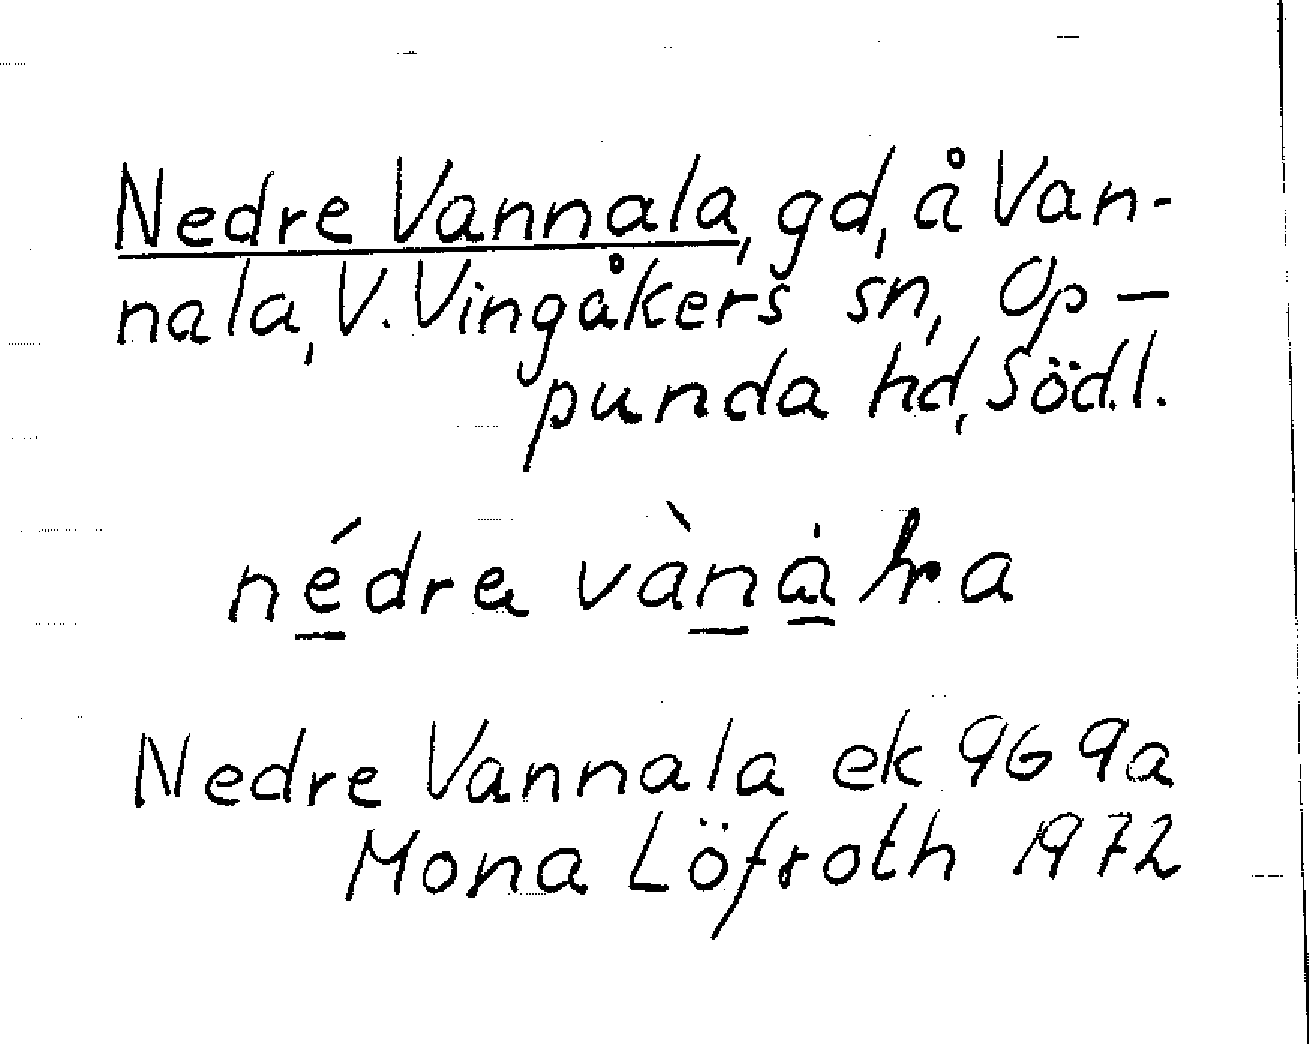 Nedre Vannala, gd, å Van-
nala, V. Vingåkers sn, Op-
punda hd, Södl.
nédrе vànàla
Nedre Vannala ek 969a
Mona Löfroth 1972